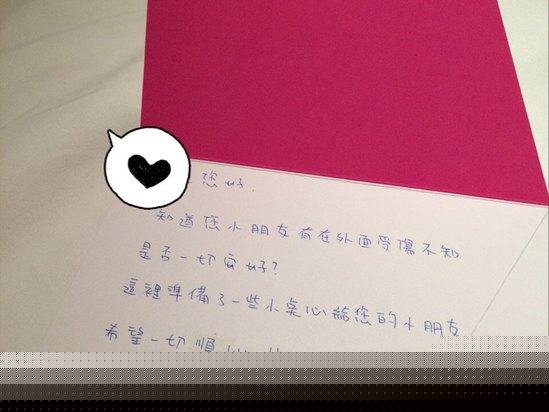 您好,
知道您小朋友有在外面受傷不知
是否一切安好?
這裡準備了一些小桌心給您的小朋友
希望一切順心